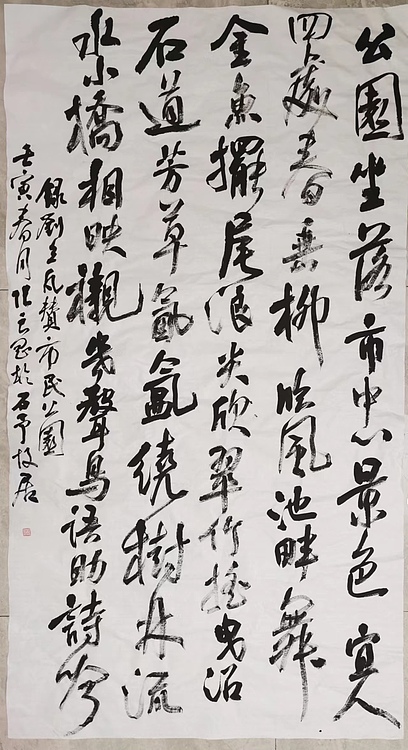 公園坐落市中心景色宜人
四處春垂柳临風池畔舞
金魚擺尾浪尖欣翠竹搖曳沿
石道芳草氤氳繞樹林流
水小橋相映襯幾聲鳥語助詩吟
錄劉贊市民公園
壬寅春月於石予故居